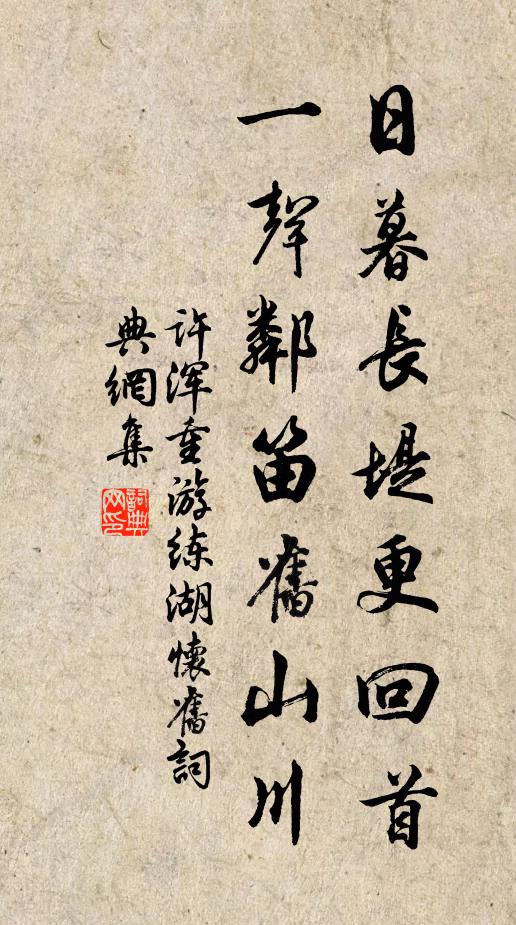 日暮長堤更回首
一聲鄰笛舊山川
许渾重游练湖懷舊詞
典網集
詞典網印